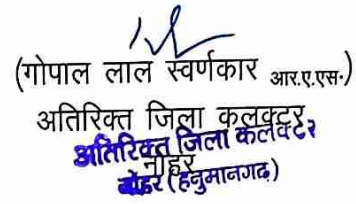 (गोपाल लाल स्वर्णकार आर.ए.एस.)
अतिरिक्त जिला कलक्टर
अतिरिक्त जिला कलक्टर
नोहर
नोहर (हनुमानगढ़)